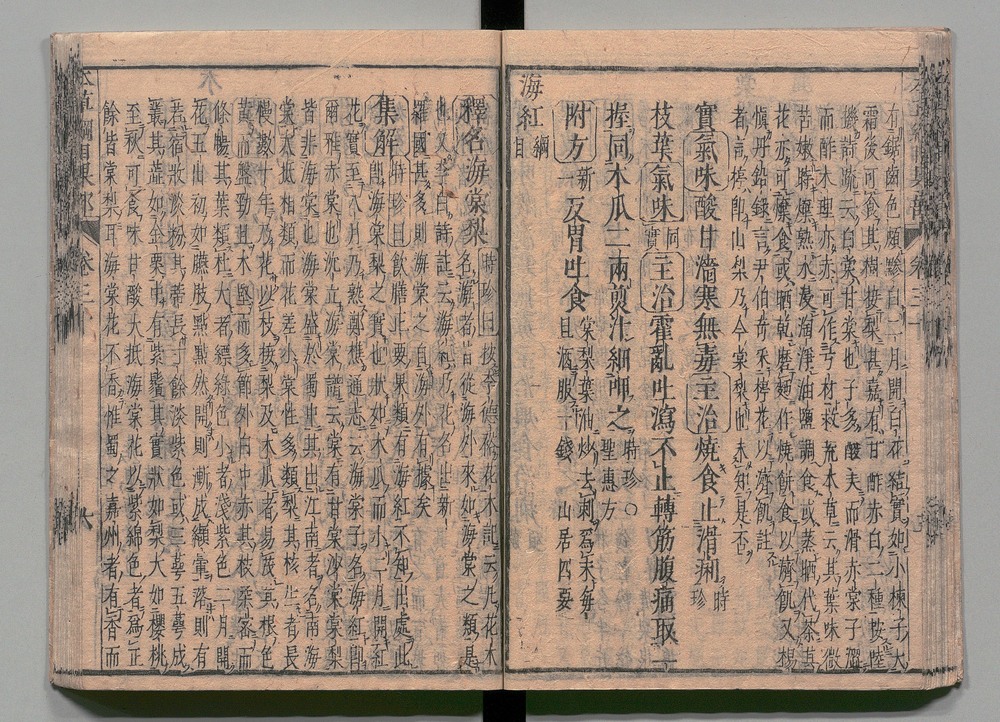 有鋸齒色頗黲白二月開白花結實如小楝子大
霜後可食其樹接梨甚嘉有甘酢赤白二種按陸
璣詩疏云白棠甘棠也子多酸美而滑赤棠子澀
而酢木理亦赤可作弓材救荒本草云其葉味微
苦嫩時煠熟水浸淘淨油鹽調食或蒸晒代茶其
花亦可煠食或晒乾磨麪作燒餅食以濟飢又楊
慎丹鉛錄言尹伯奇采楟花以濟飢註
者言楟即山梨乃今棠梨也未知是否
實氣味酸甘濇寒無毒主治燒食止滑痢時珍
枝葉氣味同實主治霍亂吐瀉不止轉筋腹痛取一
握同木瓜二兩煎汁細呷之時珍○聖惠方
附方新一反胃吐食棠梨葉油炒去刺爲末每旦酒服一錢 山居四要
海紅綱目
釋名海棠梨時珍曰按李德裕花木記云凡花木
名海者皆從海外來如海棠之類是
也又李白詩註云海紅乃花名出新
羅國甚多則海棠之自海外有據矣
集解時珍曰飲膳正要果類有海紅不知出處此
即海棠梨之實也狀如木瓜而小二月開紅
花實至八月乃熟鄭樵通志云海棠子名海紅即
爾雅赤棠也沈立海棠譜云棠有甘棠沙棠棠梨
皆非海棠也海棠盛於蜀中其出江南者名南海
棠大抵相類而花差小棠性多類梨其核生者長
慢數十年乃花以枝接梨及木瓜者易茂其根色
黃而盤勁且木堅而多節外白中赤其枝葉密而
條暢其葉類杜大者縹綠色小者淺紫色二月開
花五出初如臙肢點點然開則漸成纈暈落則有
若宿妝淡粉其蒂長寸餘淡紫色或三萼五萼成
叢其蕊如金粟中有紫鬚其實狀如梨大如櫻桃
至秋可食味甘酸大抵海棠花以紫綿色者爲正
餘皆棠梨耳海棠花不香惟蜀之嘉州者有香而